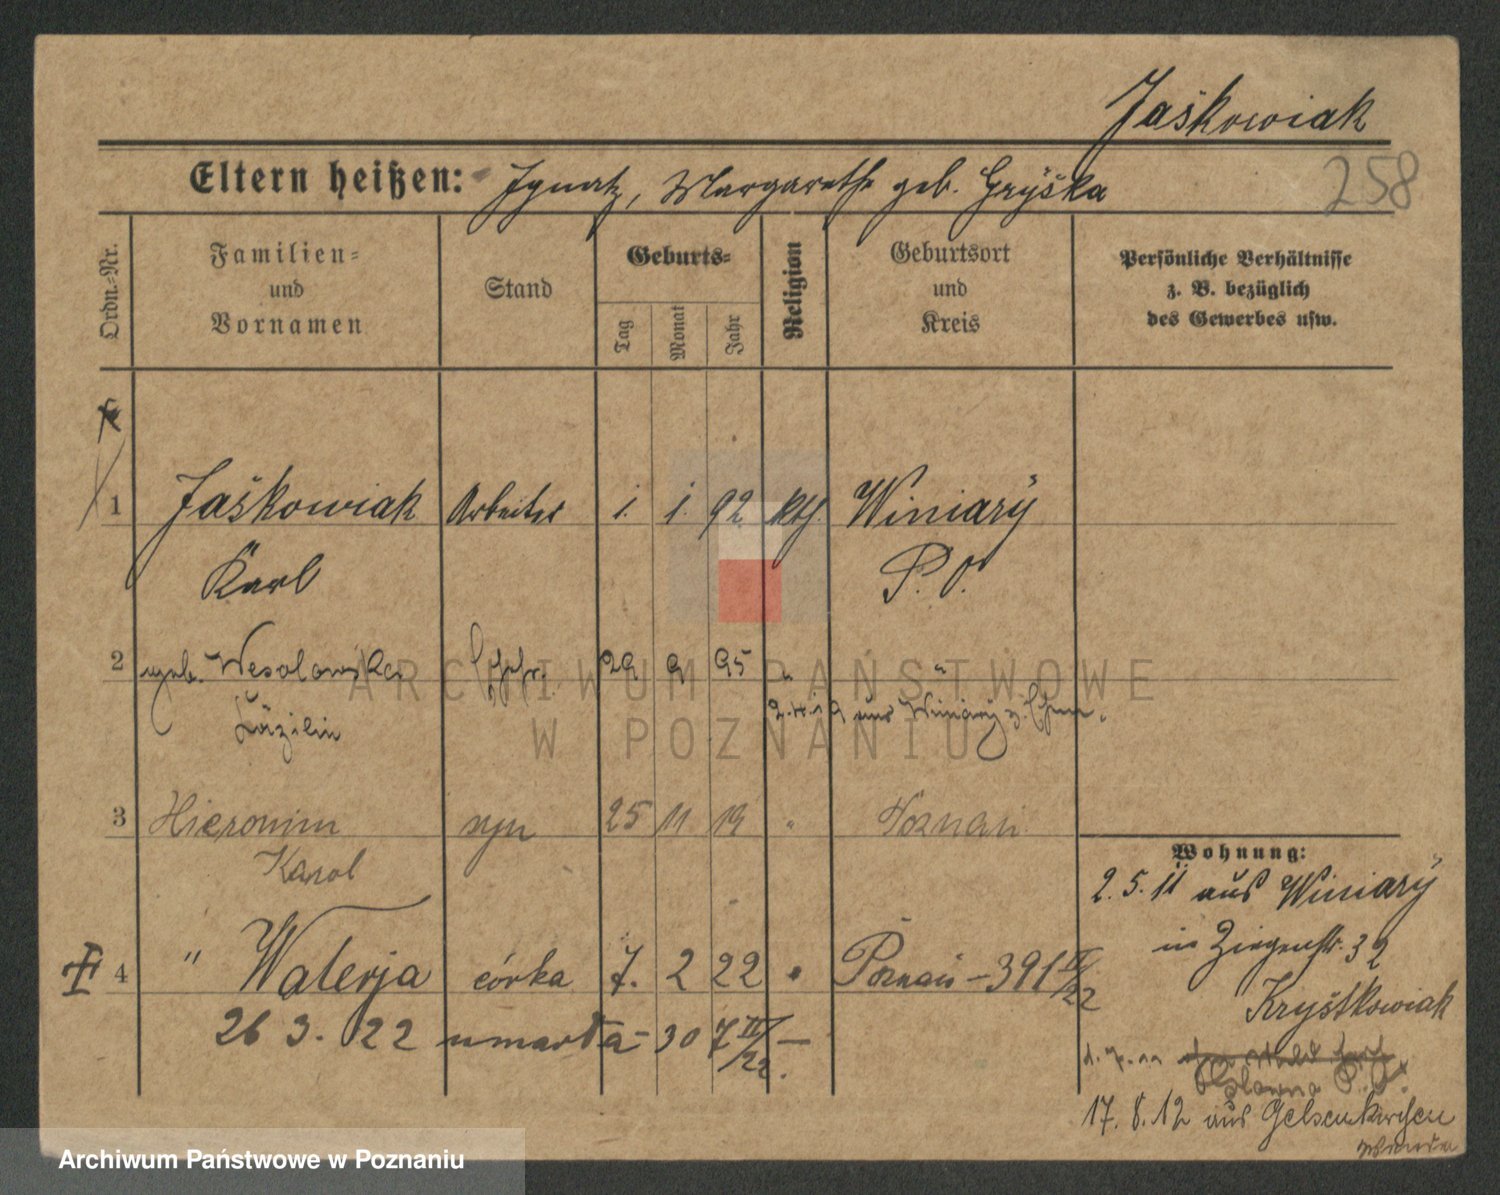 Jaškowiak
258
Eltern heißen: Ignatz, Margarethe geb. Gryška
Ordn.-Nr.
Familien-
und
Vornamen
Stand
Geburts-
Tag
Monat
Jahr
Religion
Geburtsort
und
Kreis
Persönliche Verhältnisse
z. B. bezüglich
des Gewerbes usw.
1 Jaškowiak Arbeiter 1. 1. 92 kth. Winiary
Karl P. O.
2 geb. Wesolowska 29 9 95 "
Cäzilie 2.4.19 aus Winiary
3 Hieronim syn 25 11 19 " Poznań
Karol
Wohnung:
2.5.11 aus Winiary
in Ziegenstr. 32
Kryštkowiak
4 " Walerja córka 7. 2 22 " Poznań - 391 II/22
26 3. 22 umarła - 30 7 II/22. -
P. O.
17. 8. 12 aus Gelsenkirchen
ARCHIWUM PAŃSTWOWE
W POZNANIU
Archiwum Państwowe w Poznaniu